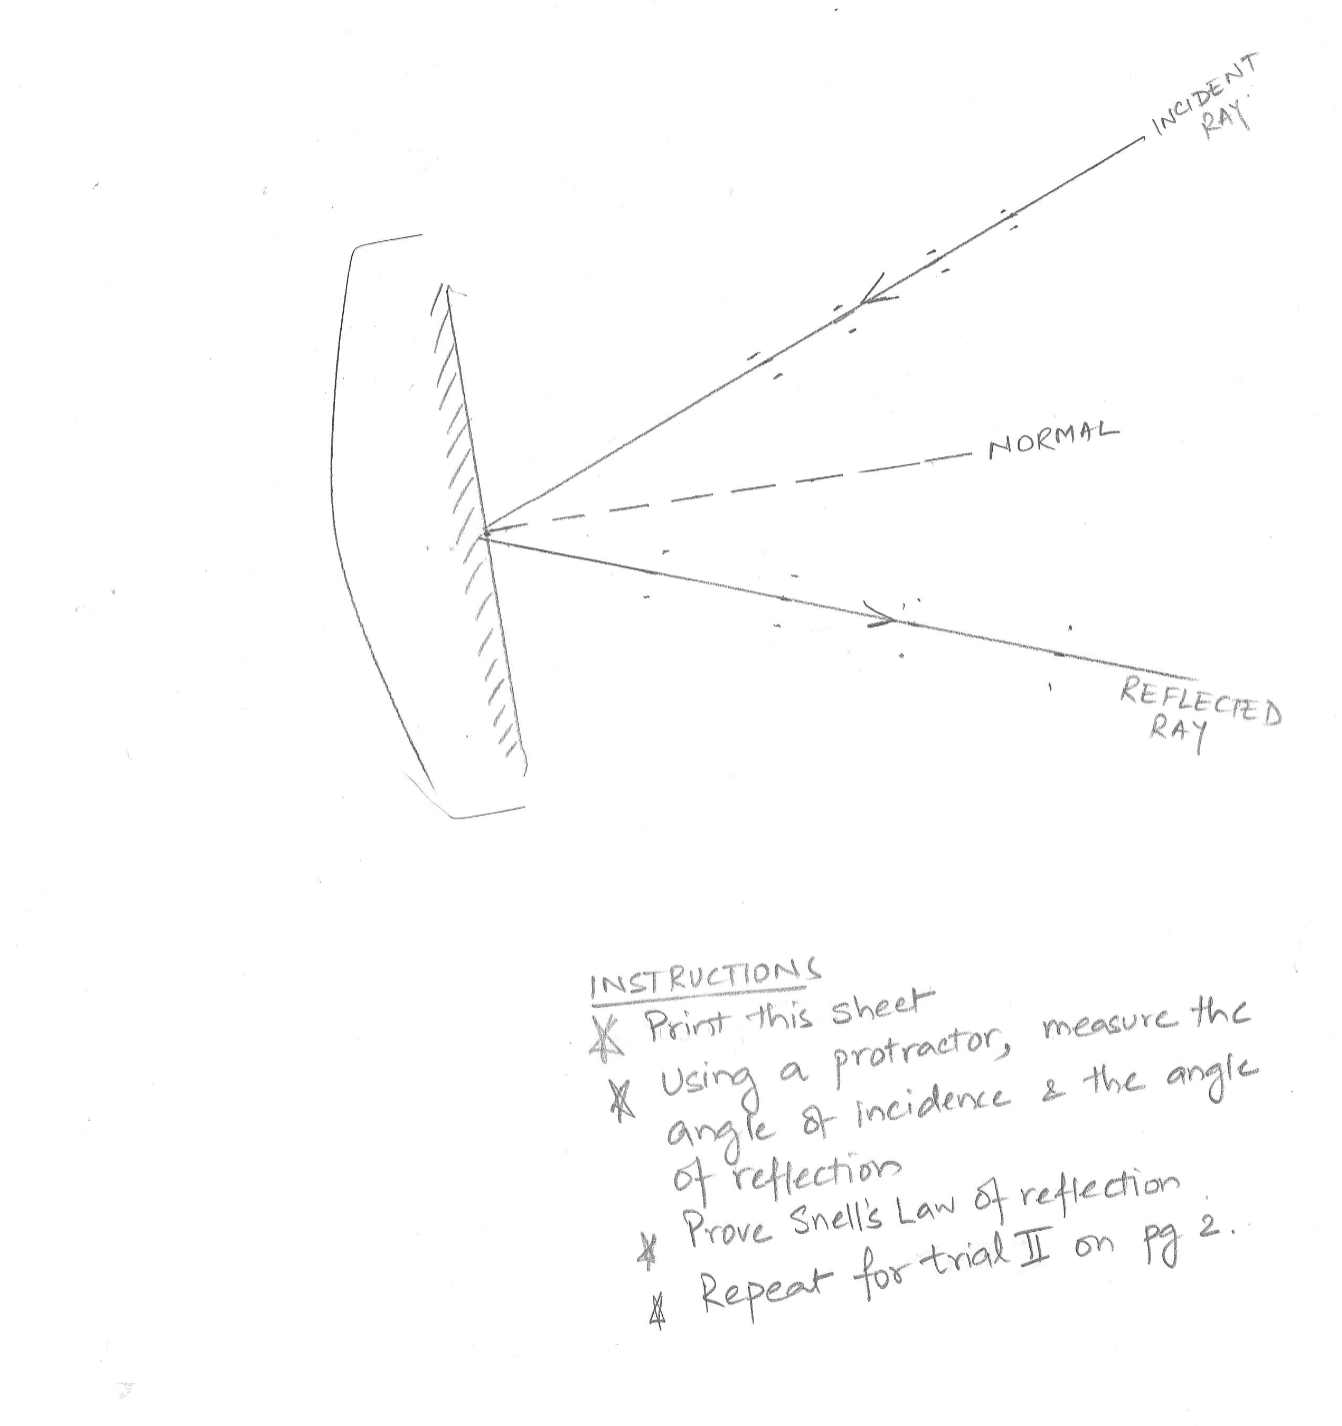 INCIDENT
RAY
NORMAL
REFLECTED
RAY
INSTRUCTIONS
Print this sheet
Using a protractor, measure the
angle of incidence & the angle
of reflection
Prove Snell's Law of reflection
Repeat for trial II on pg 2.